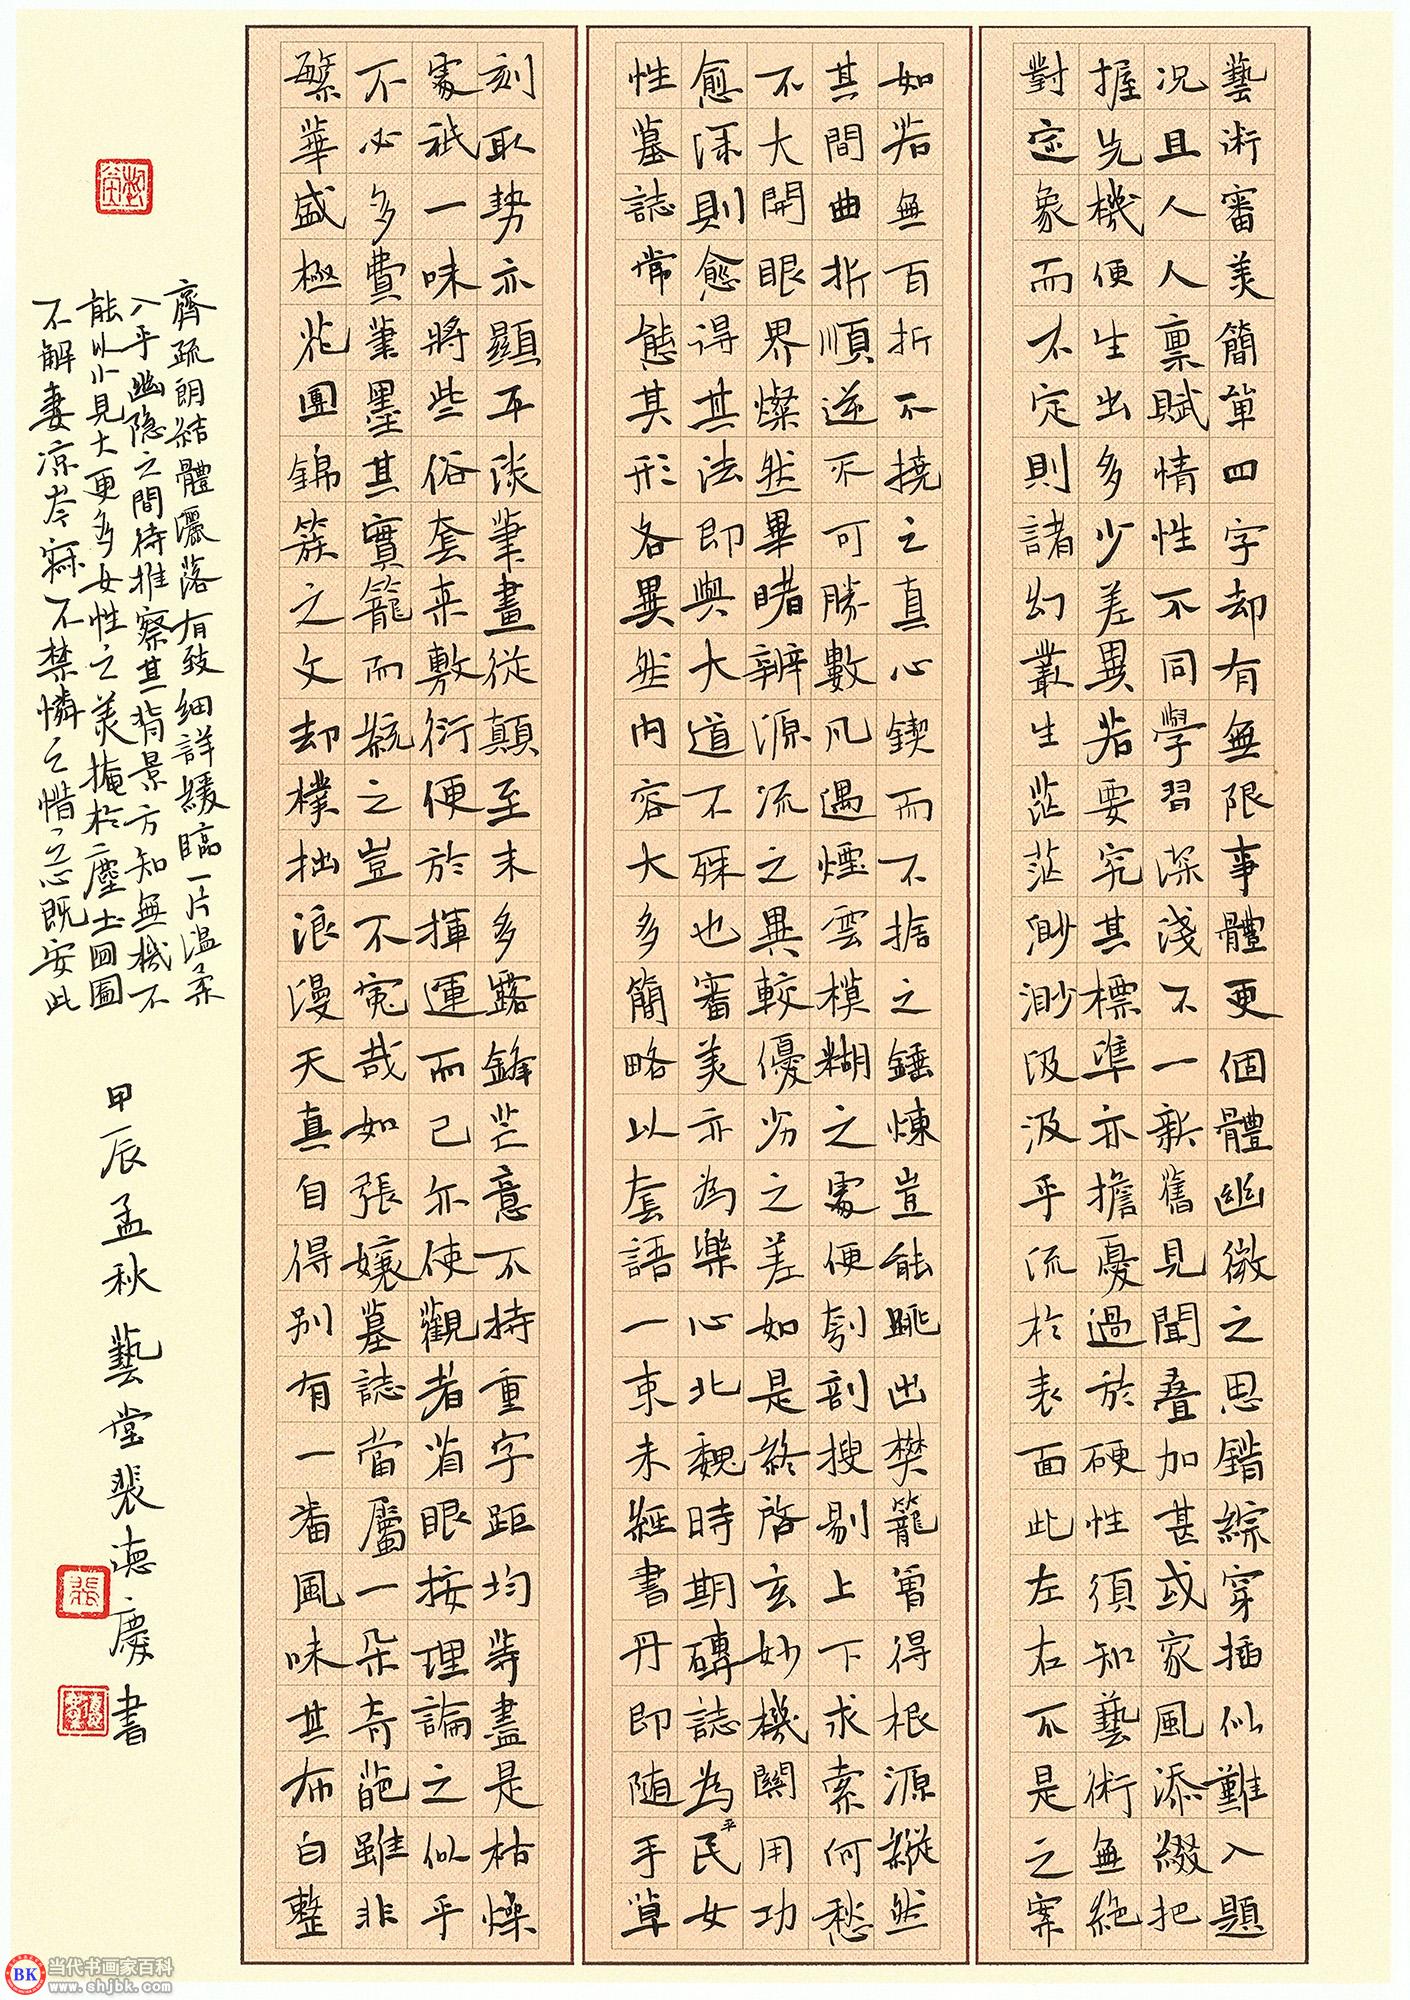 藝術審美簡單四字却有無限事體更個體幽微之思錯綜穿插似難入題
況且人人禀賦情性不同學習深淺不一新舊見聞叠加甚或家風添綴把
握先機便生出多少差異若要究其標準亦擔憂過於硬性須知藝術無絕
對定象而不定則諸幻叢生茫茫渺渺汲汲乎流於表面此左右不是之弊
如若無百折不撓之真心鍥而不捨之錘煉豈能跳出樊籠曾得根源縱然
其間曲折順逆不可勝數凡遇煙雲模糊之處便刳剖搜剔上下求索何愁
不大開眼界燦然畢睹辨源流之異較優劣之差如是終啓玄妙機關用功
愈深則愈得其法即與大道不殊也審美亦為樂心北魏時期磚誌為平民女
性墓誌常態其形各異然內容大多簡略以套語一束未經書丹即隨手草
刻取勢亦顯平淡筆畫從顛至末多露鋒芒意不持重字距均等盡是枯燥
處祇一味將些俗套來敷衍便於揮運而已亦使觀者省眼按理論之似乎
不必多費筆墨其實籠而統之豈不寃哉如張孃墓誌當屬一朵奇葩雖非
繁華盛極花團錦簇之文却樸拙浪漫天真自得別有一番風味其布白整
齊疏朗結體灑落有致細詳緩臨一片溫柔
入乎幽隱之間待推察其背景方知無機不
能以小見大更多女性之美掩於塵土囬圖
不解妻涼岑寂不禁憐之惜之心既安此
甲辰孟秋藝堂裴德慶書
BK 当代书画家百科
www.shjbk.com